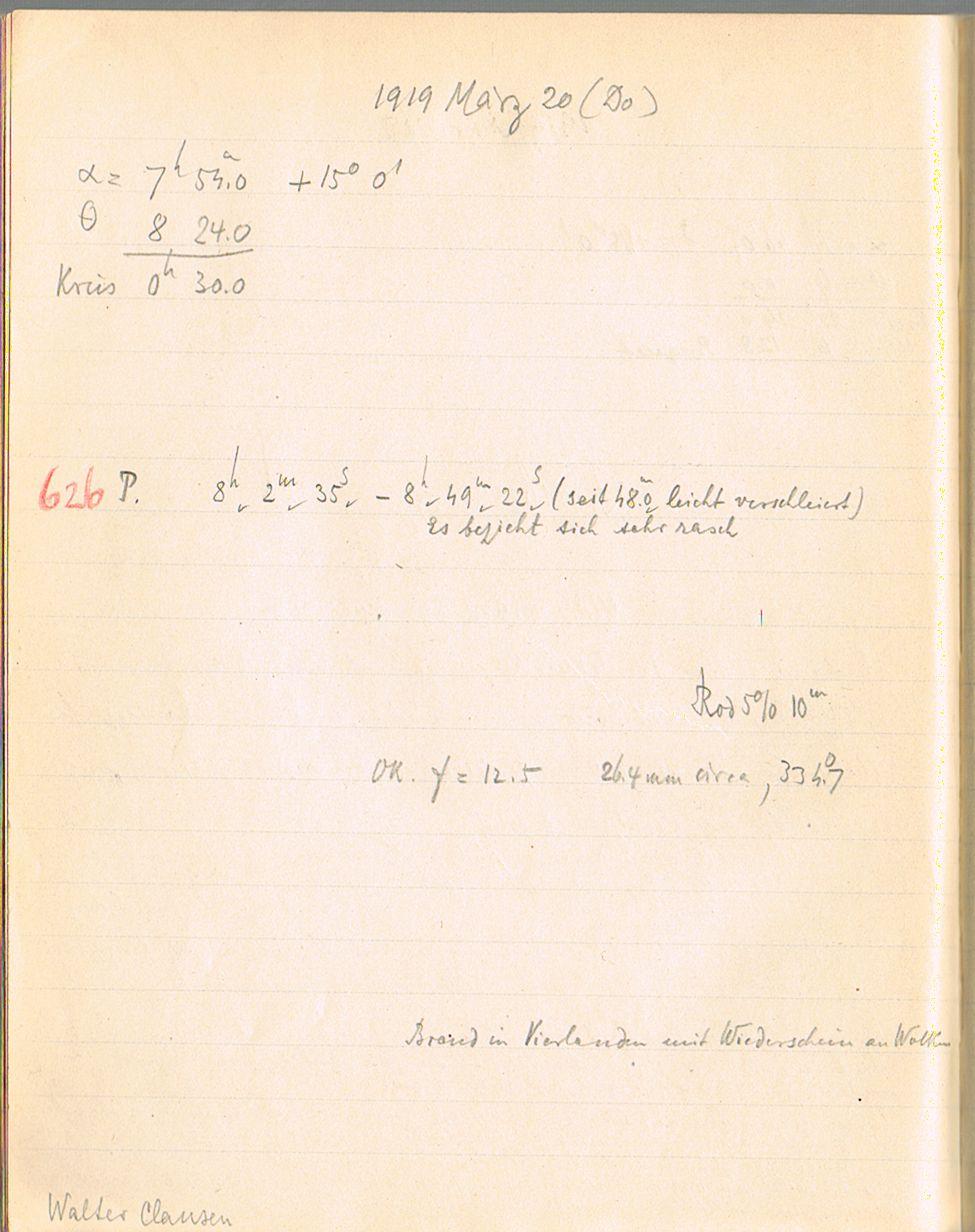 1919 März 20 (Do)
α = 7h 54m.0 + 15° 0'
θ 8 24.0
Kreis 0h 30.0
626 P. 8h 2m 35s – 8h 49m 22s (seit 48m.0 leicht verschleiert)
Es bezieht sich sehr rasch
Rod 5% 10m
OK. f = 12.5 26.4 mm circa, 334°.7
Brand in Vierlanden mit Wiederschein an Wolken
Walter Clausen